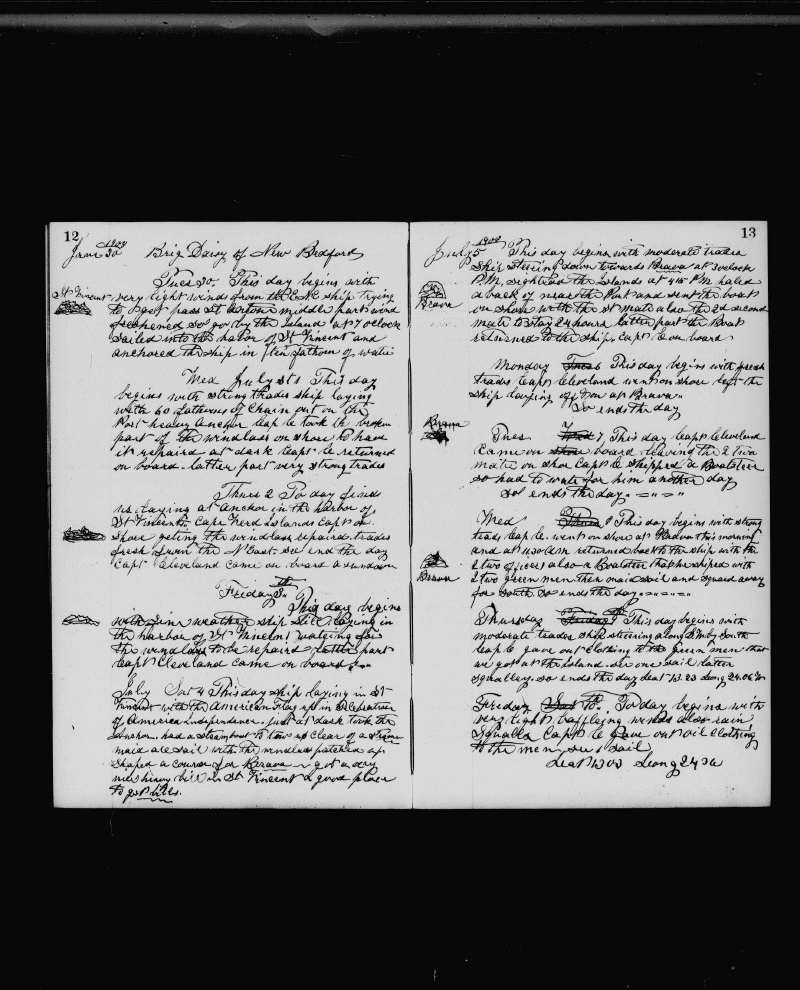 12
1908
June 30 Brig Daisy of New Bedford
Tues 30. This day begins with
St Vincent very light winds from the ENE ship trying
to Beat pass St Antone middle part wind
freshened so got by the Island at 7 oclock
sailed into the habor of St Vincent and
anchored the ship in ten fathom of water
Wed July st 1 This day
begins with strong trades ship laying
with 60 fathoms of Chain out on the
Port heavy Anchor Cap C took the broken
part of the windlass on shore to have
it repaired at dark Capt C returned
on board. latter part very strong trades
Thurs 2 To day finds
us laying at anchor in the harbor of
St Vincents. Cape Verd Islands Capt on
shore geting the windlass repaired. trades
fresh from the N East. so end the day
Capt Cleveland came on board a sundown
Friday 3th
This day begins
with fine weather ship still laying in
the harbor of St Vincent waiting for
the windlass to be repaired latter part
Capt Cleveland came on board
July Sat 4 This day ship laying in St
Vincent with the American Flag up in Celebration
of American independence. just at dark took the
Anchor. had a steamboat to tow us clear of a
maid all sail with the windlass patched up
shaped a course for Brava got a
new heavy in St Vincent a good place
to get
13
1908
July 5 This day begins with moderate trades
ship steering down towards Brava at 3 oclock
P.M. sighted the Islands at 4 P.M. haled
Brava a back of near the Port and sent the boat
on shore with the st mate also the 2d second
mate to stay 24 hours latter part the Boat
returned to the ship. Capt C on board
Monday Tues 6 This day begins with fresh
trades Capt Cleveland went on shore. left the
ship laying of & on at Brava
So ends the day
Brava
Tues Wed 7 This day Capt Cleveland
came on shore board leaving the 2 two
mates on shore Capt C shipped a Boatsteer
so had to wate for him another day
So ends the day. = " = " =
Wed Thurs 8 This day begins with strong
trads Cap C. went on shore at Brava this morning
and at returned back to the ship with the
2 two officers also a Boatsteer that he shiped with
Brava 2 two green men then maid sail and squared away
for South So ends the day
Thursday Friday 9 This day begins with
moderate trades ship steering along S by South
Cap C gave out clothing to the green men that
we got at the island. see one sail latter
squalley. so ends the day Lat 13.23 Long 24.06 W
Friday Sat 10. To day begins with
very light baffleing winds also rain
Squalls Capt C gave out oil clothing
to the men see 1 sail
Lat Long 24 30